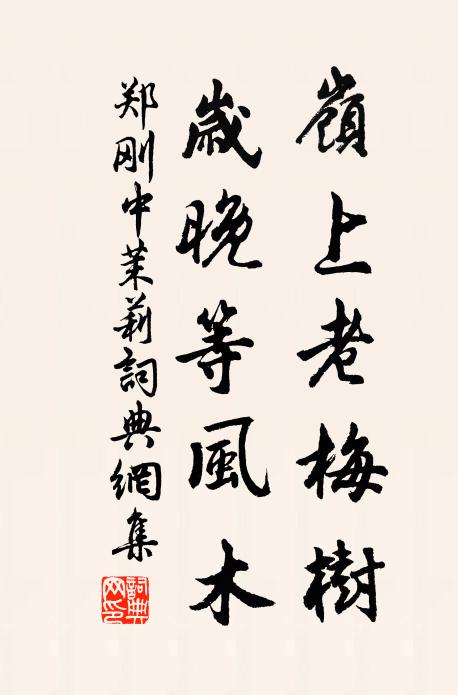 嶺上老梅樹
歲晚等風木
郑刚中茉莉詞典網集
詞典網印